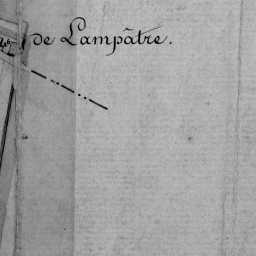 de Lampâtre.